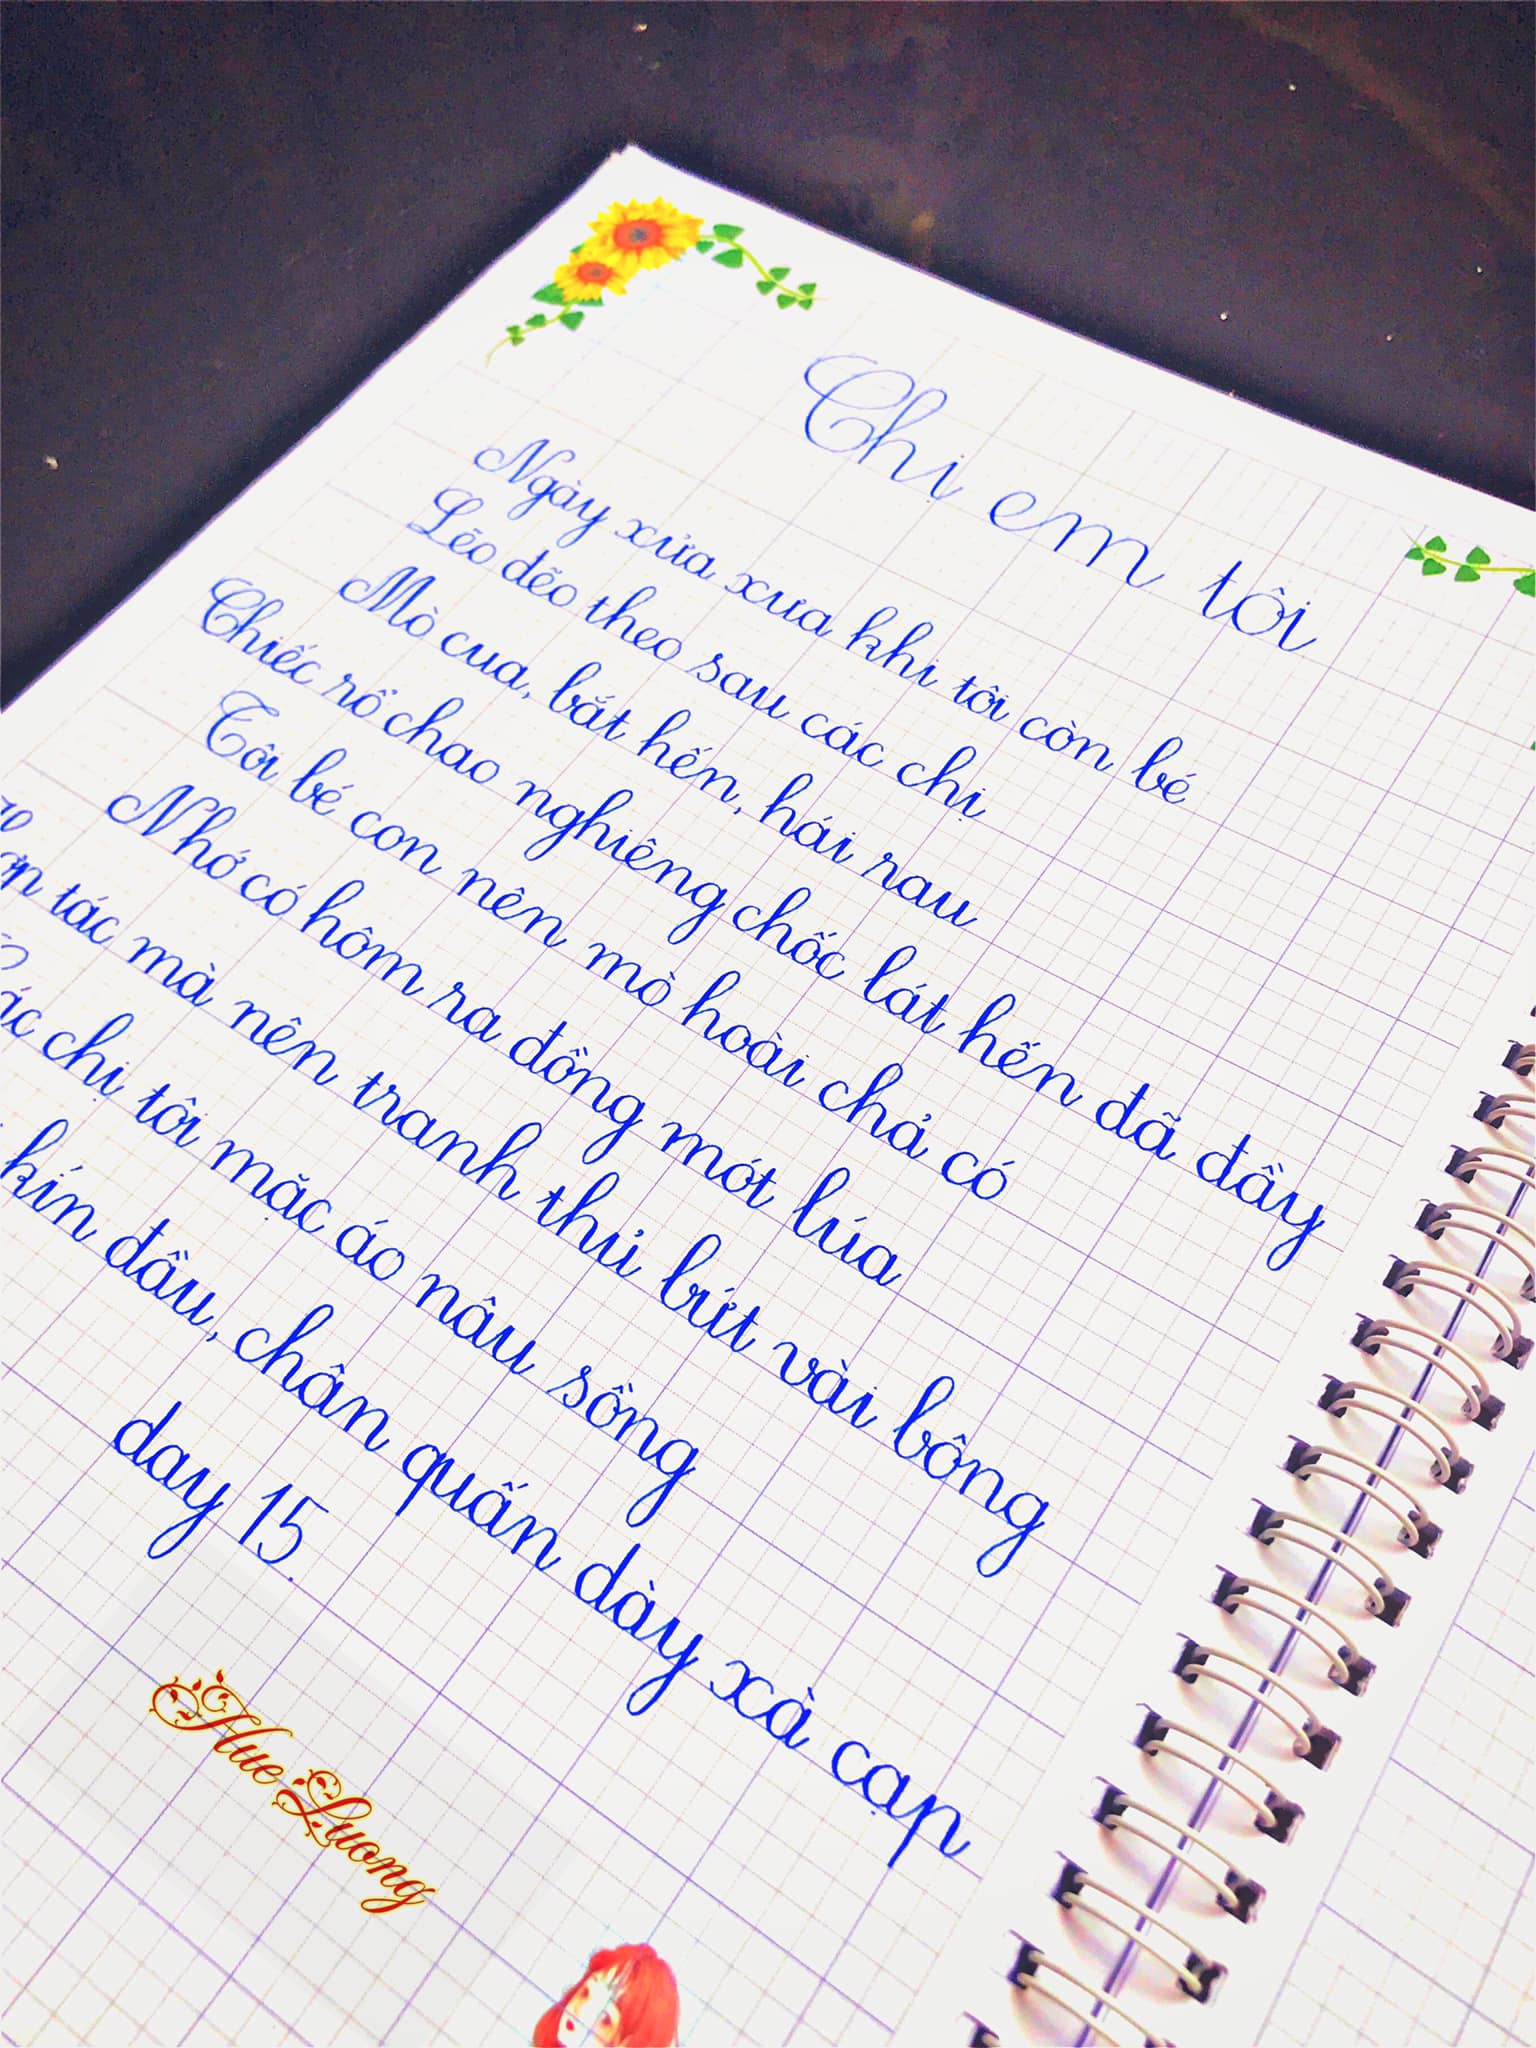 Chị em tôi
Ngày xửa xưa khi tôi còn bé
Lẽo đẽo theo sau các chị
Mò cua, bắt hến, hái rau
Chiếc rổ chao nghiêng chốc lát hến đã đầy
Tôi bé con nên mò hoài chả có
Nhớ có hôm ra đồng mót lúa
tác mà nên tranh thủ bứt vài bông
chị tôi mặc áo nâu sồng
kín đầu, chân quấn dày xà cạp
day 15.
Hue Luong